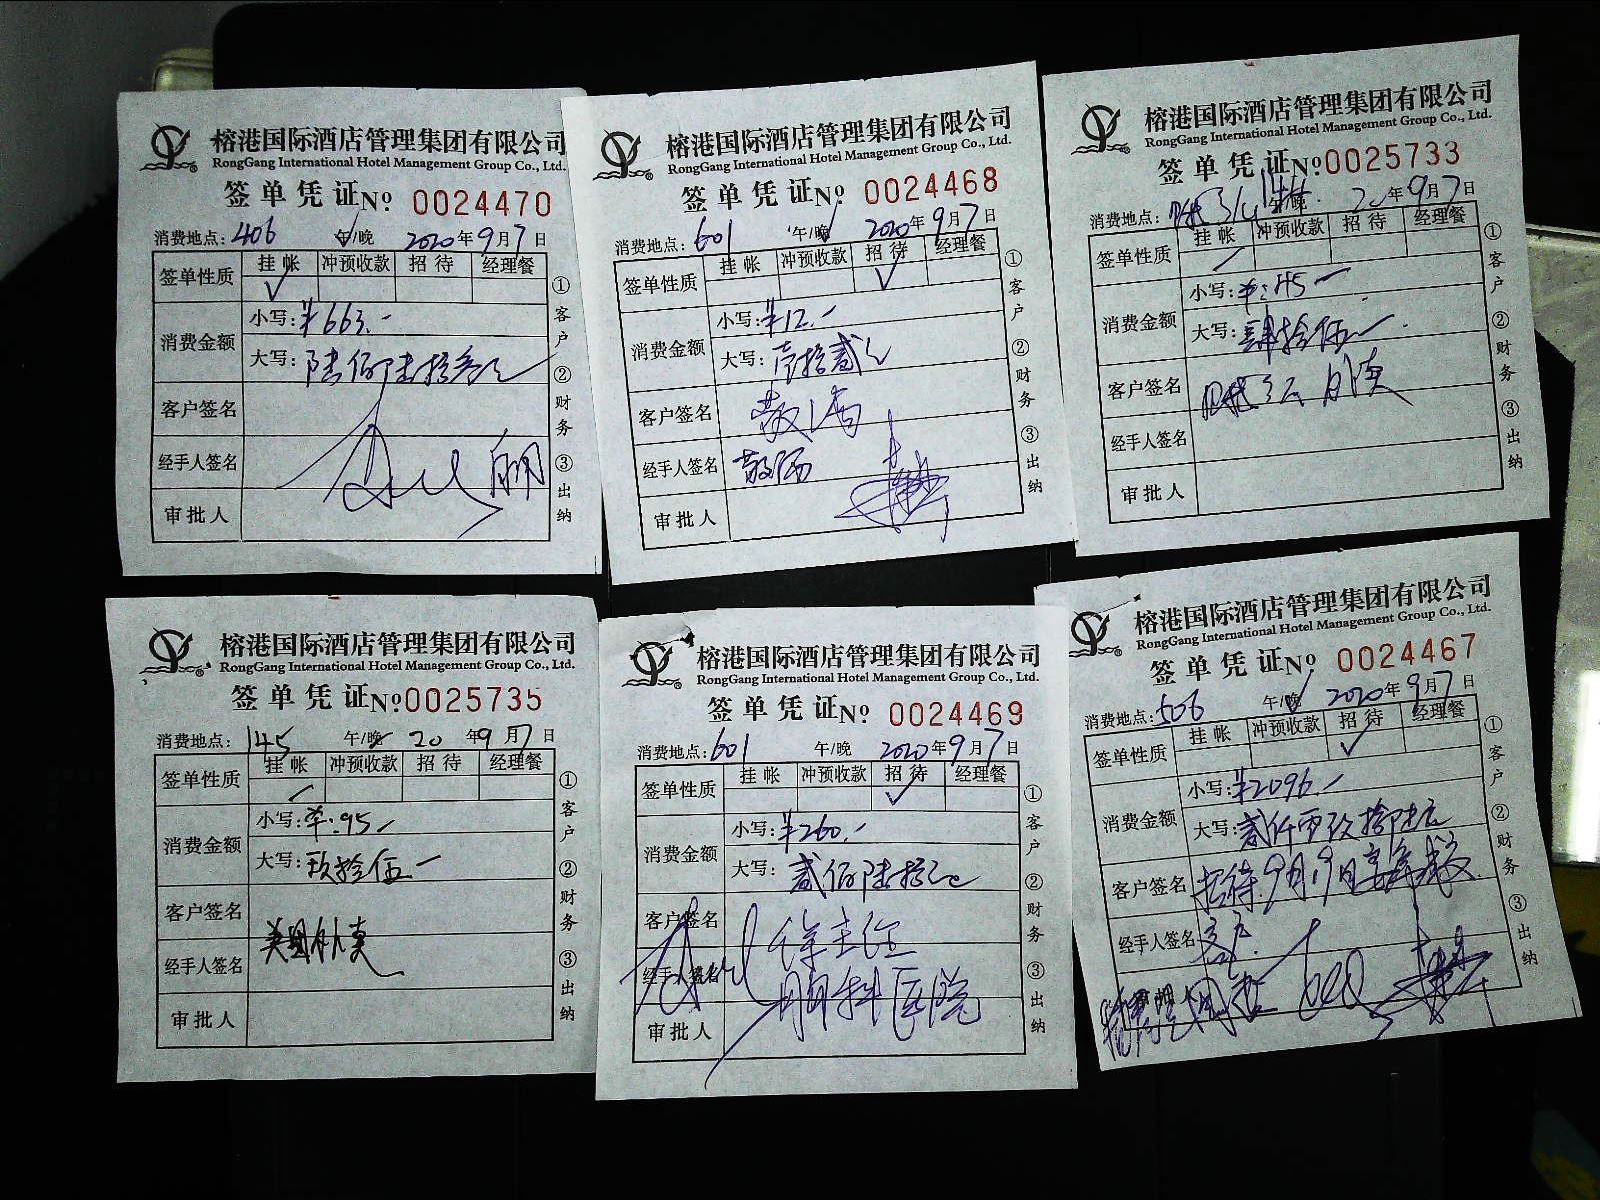 榕港国际酒店管理集团有限公司
RongGang International Hotel Management Group Co., Ltd.
签单凭证 No 0024470
消费地点: 406 午/晚 2020年9月7日
签单性质 挂帐 冲预收款 招待 经理餐
消费金额 小写: ¥663.-
大写: 陆佰陆拾叁元
客户签名
经手人签名
审批人
①客户 ②财务 ③出纳
榕港国际酒店管理集团有限公司
RongGang International Hotel Management Group Co., Ltd.
签单凭证 No 0024468
消费地点: 601 午/晚 2020年9月7日
签单性质 挂帐 冲预收款 招待 经理餐
消费金额 小写: ¥12.-
大写: 壹拾贰元
客户签名
经手人签名
审批人
①客户 ②财务 ③出纳
榕港国际酒店管理集团有限公司
RongGang International Hotel Management Group Co., Ltd.
签单凭证 No 0025733
消费地点: 午/晚 20年9月7日
签单性质 挂帐 冲预收款 招待 经理餐
消费金额 小写: ¥:45-
大写: 肆拾伍-
客户签名
经手人签名
审批人
①客户 ②财务 ③出纳
榕港国际酒店管理集团有限公司
RongGang International Hotel Management Group Co., Ltd.
签单凭证 No 0025735
消费地点: 145 午/晚 20年9月7日
签单性质 挂帐 冲预收款 招待 经理餐
消费金额 小写: ¥:95-
大写: 玖拾伍-
客户签名
美团
经手人签名
审批人
①客户 ②财务 ③出纳
榕港国际酒店管理集团有限公司
RongGang International Hotel Management Group Co., Ltd.
签单凭证 No 0024469
消费地点: 601 午/晚 2020年9月7日
签单性质 挂帐 冲预收款 招待 经理餐
消费金额 小写: ¥260.-
大写: 贰佰陆拾元
客户签名 徐主任
经手人签名 肛肠科医院
审批人
①客户 ②财务 ③出纳
榕港国际酒店管理集团有限公司
RongGang International Hotel Management Group Co., Ltd.
签单凭证 No 0024467
消费地点: 506 午/晚 2020年9月7日
签单性质 挂帐 冲预收款 招待 经理餐
消费金额 小写: ¥2096.-
大写: 贰仟零玖拾陆元
客户签名 招待9月19日
经手人签名 客户
①客户 ②财务 ③出纳